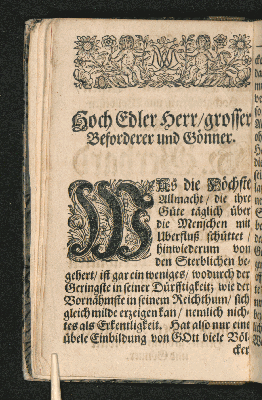 Hoch Edler Herr/grosser
Beforderer und Gönner.
WAs die Höchste
Allmacht / die ihre
Güte täglich über
die Menschen mit
Uberfluß schüttet /
hinwiederum von
den Sterblichen be-
gehert / ist gar ein weniges / wodurch der
Geringste in seiner Dürfftigkeit; wie der
Vornähmste in seinem Reichthum / sich
gleich milde erzeigen kan / nemlich nich-
tes als Erkentligkeit. Hat also nur eine
übele Einbildung von GOtt viele Völ-
cker